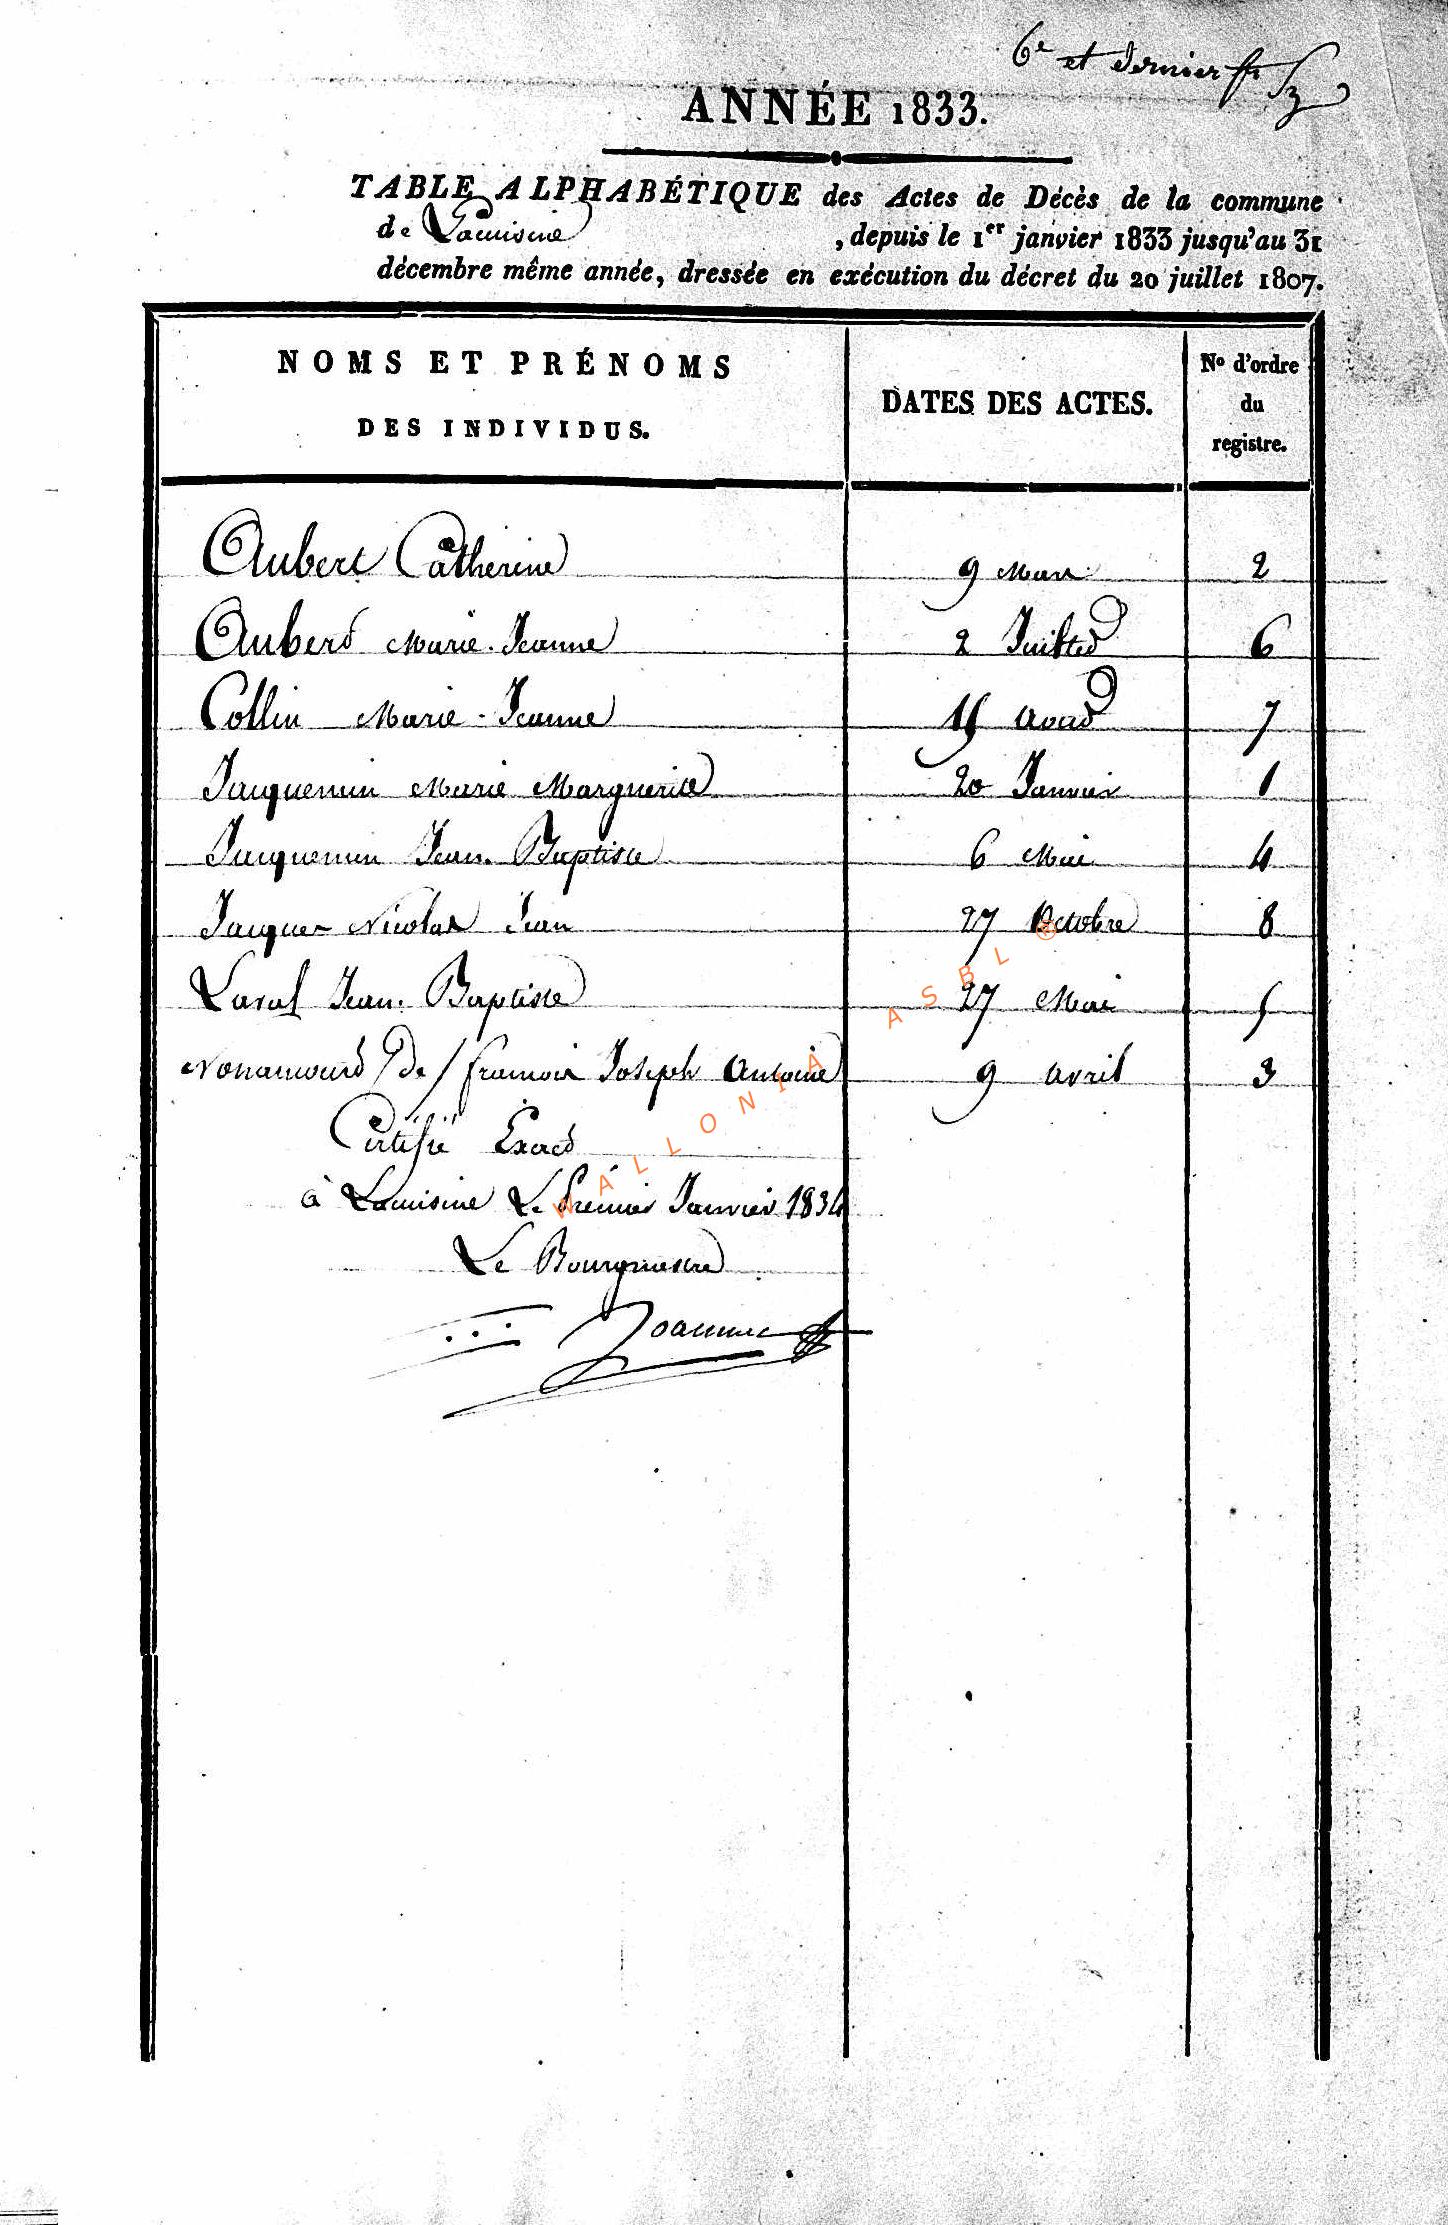 6e et dernier
ANNÉE 1833.
TABLE ALPHABÉTIQUE des Actes de Décès de la commune
de Lacuisine , depuis le 1er janvier 1833 jusqu'au 31
décembre même année, dressée en exécution du décret du 20 juillet 1807.
NOMS ET PRÉNOMS
DES INDIVIDUS.
DATES DES ACTES.
No d'ordre
du
registre.
Aubert Catherine 9 Mars 2
Aubert Marie-Jeanne 2 Juillet 6
Collin Marie-Jeanne 15 Aout 7
Jacquemin Marie Marguerite 20 Janvier 1
Jacquemin Jean-Baptiste 6 Mai 4
Jacques Nicolas Jean 27 Octobre 8
Laval Jean-Baptiste 27 Mai 5
Nonancourt (de) francois Joseph Antoine 9 avril 3
Certifié Exact
à Lacuisine Le Premier Janvier 1834
Le Bourgmestre
WALLONIA ASBL ©